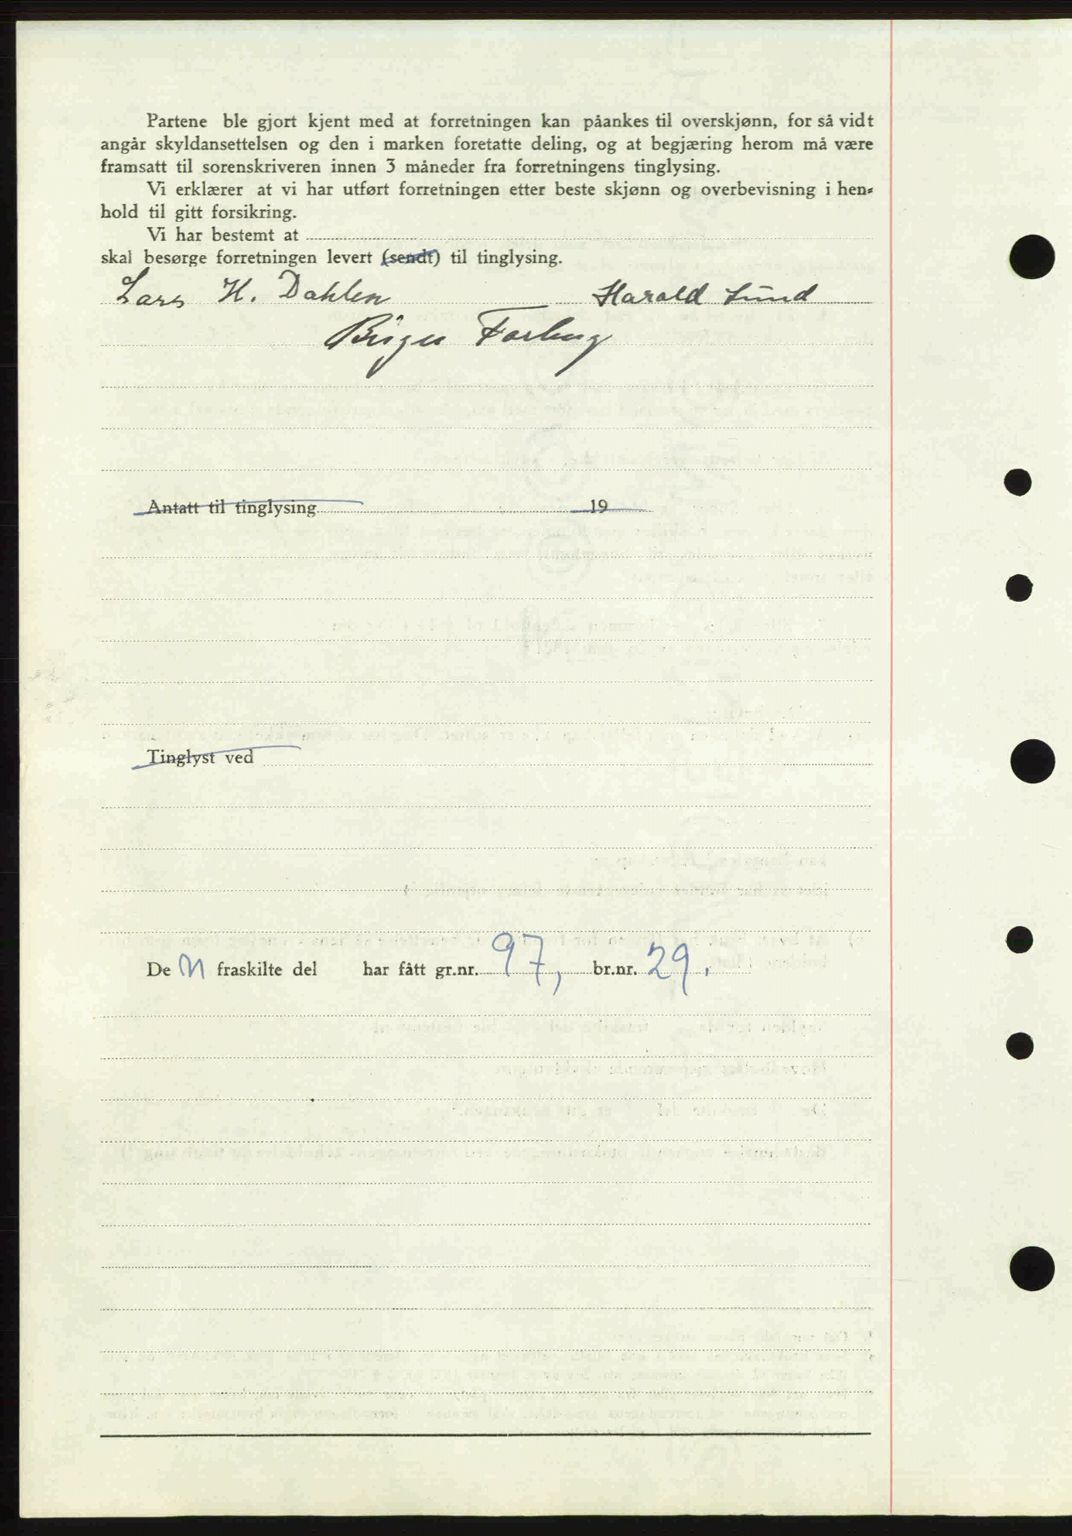 Partene ble gjort kjent med at forretningen kan påankes til overskjønn, for så vidt
angår skyldansettelsen og den i marken foretatte deling, og at begjæring herom må være
framsatt til sorenskriveren innen 3 måneder fra forretningens tinglysing.
Vi erklærer at vi har utført forretningen etter beste skjønn og overbevisning i hen-
hold til gitt forsikring.
Vi har bestemt at
skal besørge forretningen levert (sendt) til tinglysing.
Lars H. Dahlen Harald Lund
Birger
Antatt til tinglysing 19
Tinglyst ved
De n fraskilte del har fått gr.nr. 97, br.nr. 29.